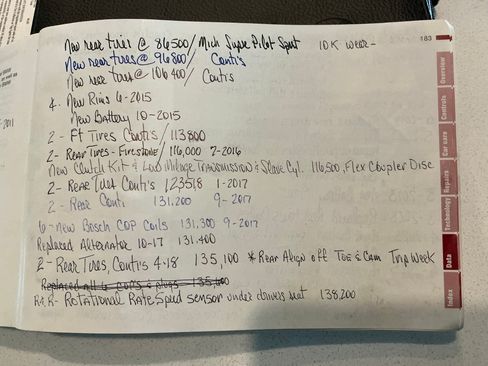 183
New rear tires @ 86,500/Mich Supe Pilot Sport 10K wear-
New rear tires @ 96800/ Conti's
New rear tires @ 106400/ Contis
4. New Rims 6-2015
New Battery 10-2015
2- Ft Tires Conti's/113800
2- Rear Tires- Firestone/116,000 7-2016
New Clutch Kit & Low Mileage Transmission & Slave Cyl. 116,500, Flex Coupler Disc
2- Rear Tires Conti's 123518 1-2017
2- Rear Conti 131,200 9-2017
6- new Bosch COP Coils 131,300 9-2017
Replaced Alternator 10-17 131,400
2- Rear Tires, Contis 4-18 135,100 *Rear Align off Toe & Cam Trip Week
Replaced all 6 coils & plugs - 135,
R&R- Rotational Rate Speed sensor under drivers seat 138,200
Overview
Controls
Car care
Repairs
Technology
Data
Index
2011